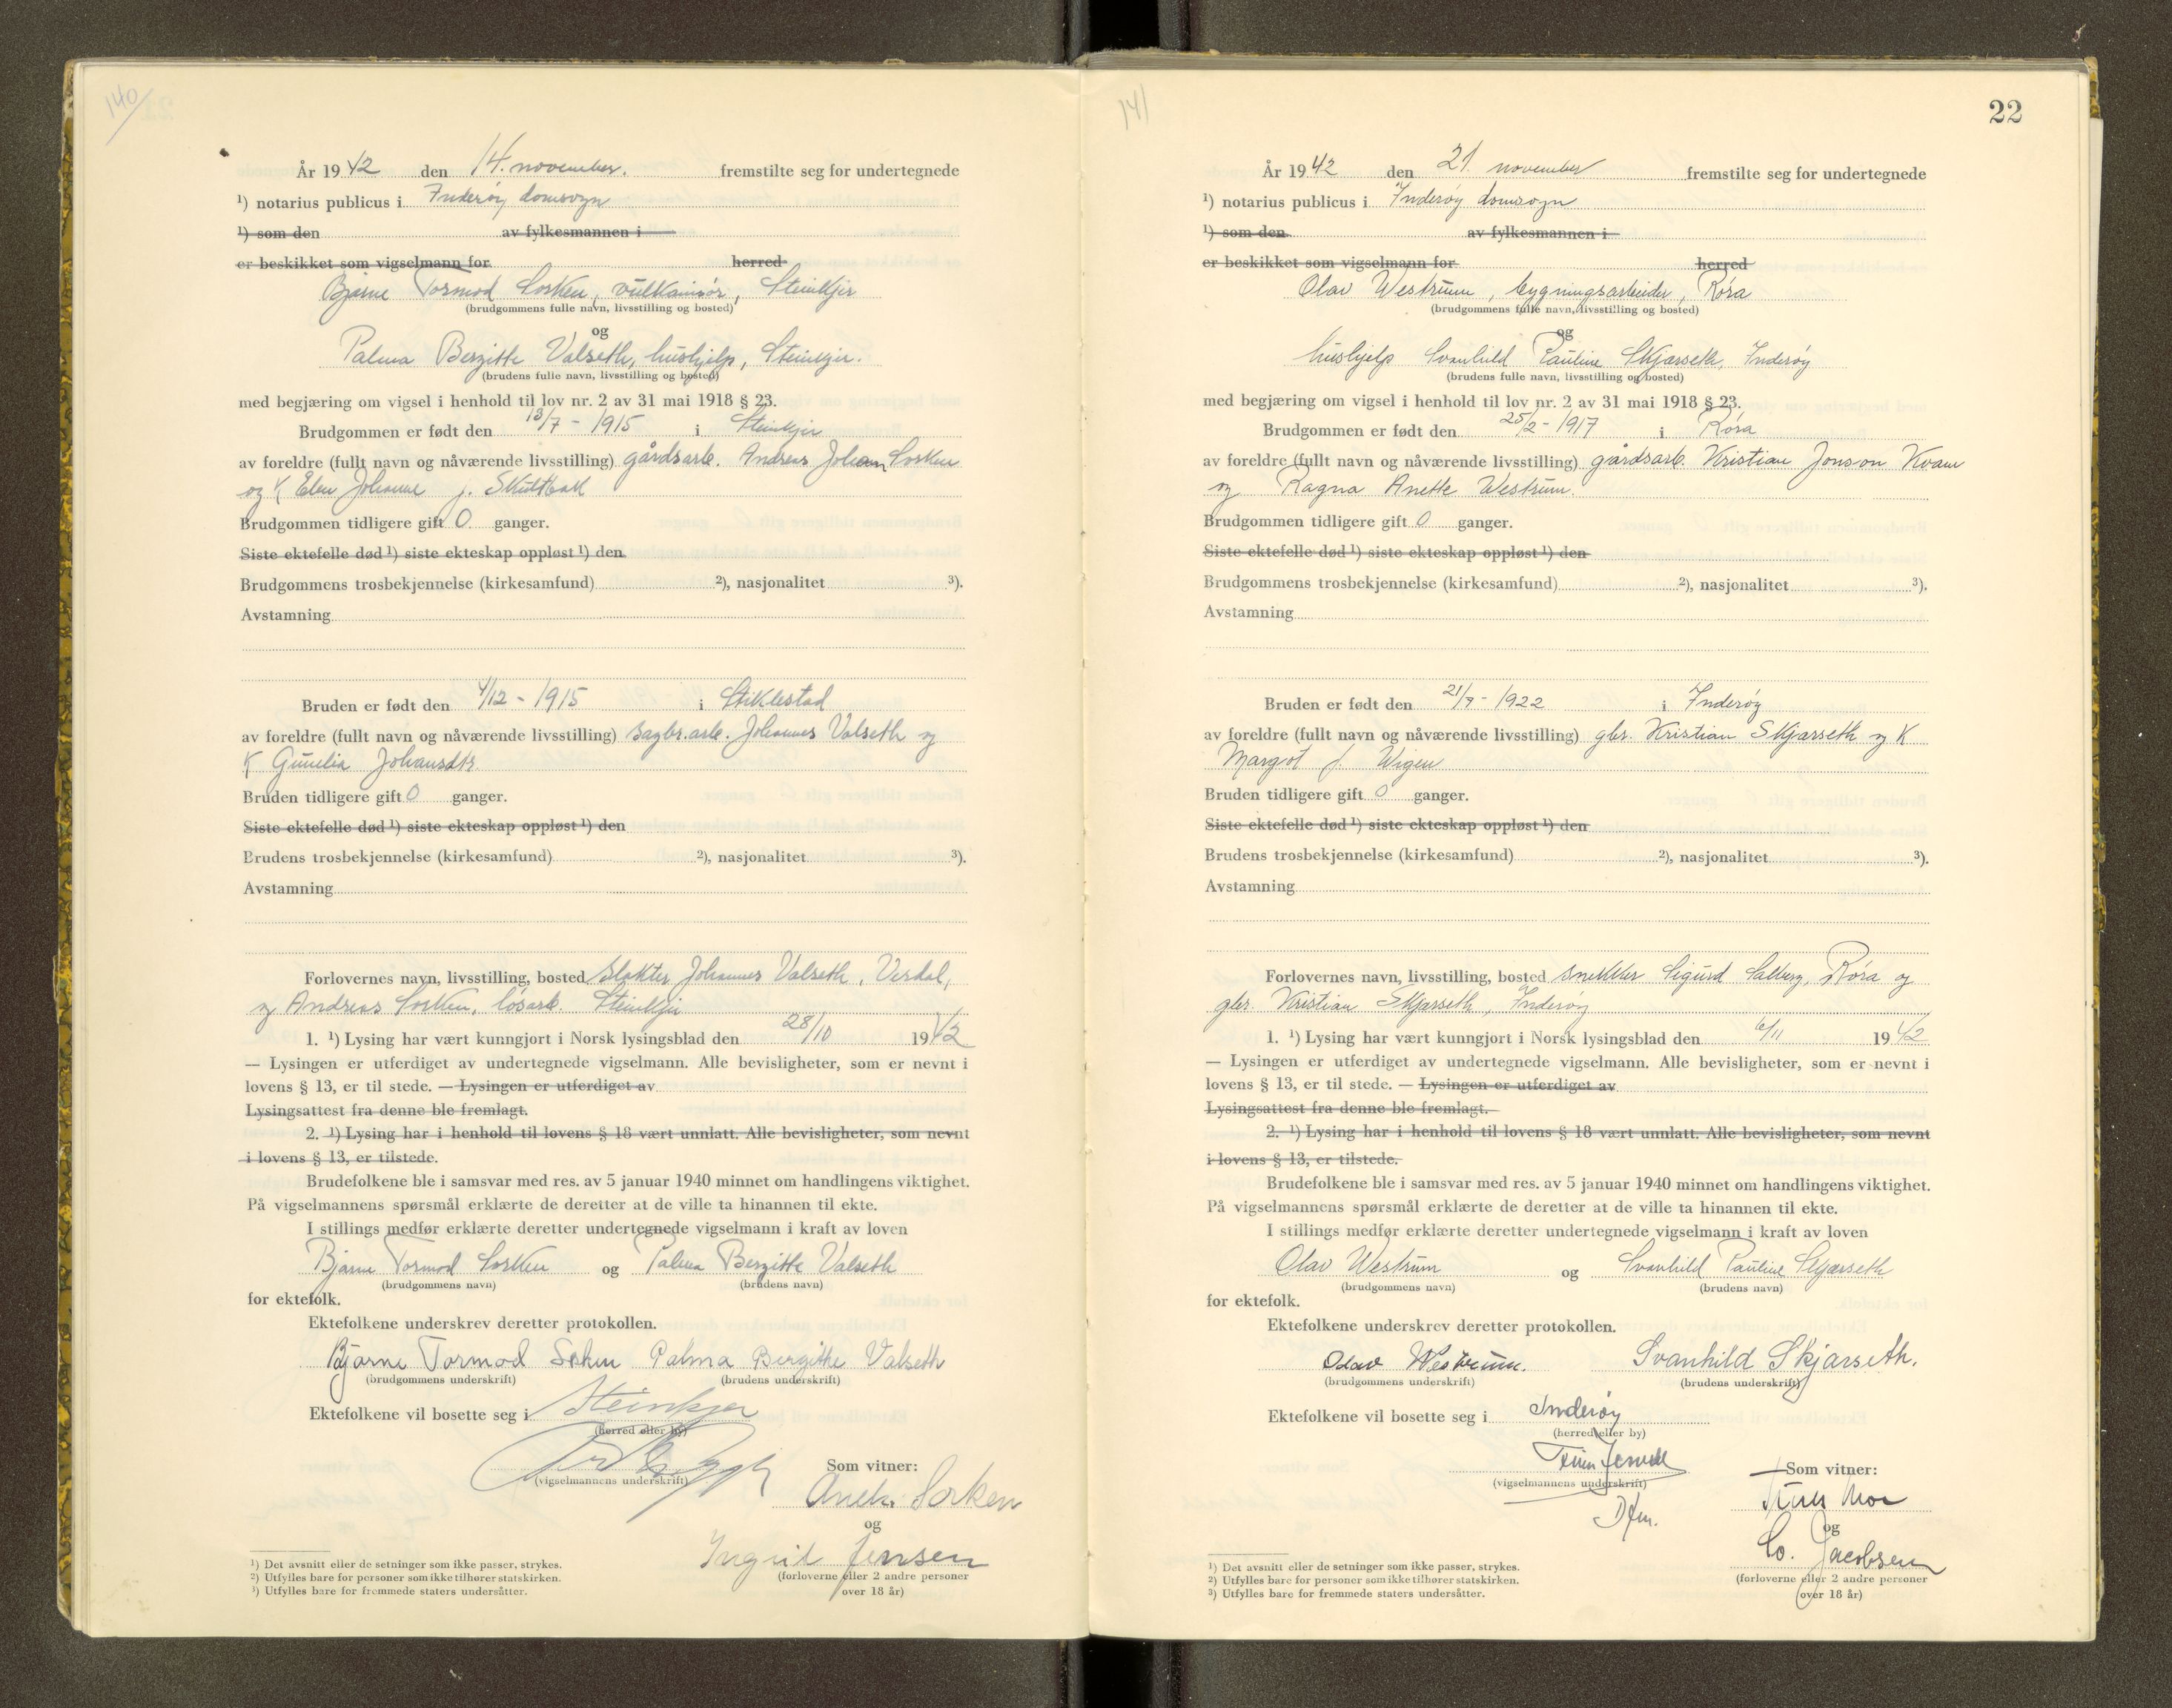 140
År 1942 den 14. november. fremstilte seg for undertegnede
¹) notarius publicus i Inderøy domsogn
¹) som den av fylkesmannen i
er beskikket som vigselmann for herred
Bjarne Tormod Sorken, vulkanisør, Steinkjer
(brudgommens fulle navn, livsstilling og bosted)
og
Palma Bergitte Valseth, hushjelp, Steinkjer.
(brudens fulle navn, livsstilling og bosted)
med begjæring om vigsel i henhold til lov nr. 2 av 31 mai 1918 § 23.
Brudgommen er født den 13/7 - 1915 i Steinkjer
av foreldre (fullt navn og nåværende livsstilling) gårdsarb. Andreas Johan Sorken
og K Elen Johanne f.
Brudgommen tidligere gift 0 ganger.
Siste ektefelle død ¹) siste ekteskap oppløst ¹) den
Brudgommens trosbekjennelse (kirkesamfund) ²), nasjonalitet ³).
Avstamning
Bruden er født den 4/12 - 1915 i Stiklestad
av foreldre (fullt navn og nåværende livsstilling) sagbr.arb. Johannes Valseth og
K Gunelia Johansdtr.
Bruden tidligere gift 0 ganger.
Siste ektefelle død ¹) siste ekteskap oppløst ¹) den
Brudens trosbekjennelse (kirkesamfund) ²), nasjonalitet ³).
Avstamning
Forlovernes navn, livsstilling, bosted slakter Johannes Valseth, Verdal,
og Andreas Sorken, løsarb. Steinkjer
1. ¹) Lysing har vært kunngjort i Norsk lysingsblad den 28/10 1942
— Lysingen er utferdiget av undertegnede vigselmann. Alle bevisligheter, som er nevnt i
lovens § 13, er til stede. — Lysingen er utferdiget av
Lysingsattest fra denne ble fremlagt.
2. ¹) Lysing har i henhold til lovens § 18 vært unnlatt. Alle bevisligheter, som nevnt
i lovens § 13, er tilstede.
Brudefolkene ble i samsvar med res. av 5 januar 1940 minnet om handlingens viktighet.
På vigselmannens spørsmål erklærte de deretter at de ville ta hinannen til ekte.
I stillings medfør erklærte deretter undertegnede vigselmann i kraft av loven
Bjarne Tormod Sorken og Palma Bergitte Valseth
(brudgommens navn) (brudens navn)
for ektefolk.
Ektefolkene underskrev deretter protokollen.
Bjarne Tormod Sorken Palma Bergitte Valseth
(brudgommens underskrift) (brudens underskrift)
Ektefolkene vil bosette seg i Steinkjer
(herred eller by)
(vigselmannens underskrift)
Som vitner:
Sorken
og
Ingrid Jensen
(forloverne eller 2 andre personer
over 18 år)
¹) Det avsnitt eller de setninger som ikke passer, strykes.
²) Utfylles bare for personer som ikke tilhører statskirken.
³) Utfylles bare for fremmede staters undersåtter.
141
22
År 1942 den 21. november fremstilte seg for undertegnede
¹) notarius publicus i Inderøy domsogn
¹) som den av fylkesmannen i
er beskikket som vigselmann for herred
Olav Westrum, bygningsarbeider, Røra
(brudgommens fulle navn, livsstilling og bosted)
og
hushjelp Svanhild Pauline Skjærseth, Inderøy
(brudens fulle navn, livsstilling og bosted)
med begjæring om vigsel i henhold til lov nr. 2 av 31 mai 1918 § 23.
Brudgommen er født den 25/2 - 1917 i Røra
av foreldre (fullt navn og nåværende livsstilling) gårdsarb. Kristian Jonson Kvam
og Ragna Anette Westrum.
Brudgommen tidligere gift 0 ganger.
Siste ektefelle død ¹) siste ekteskap oppløst ¹) den
Brudgommens trosbekjennelse (kirkesamfund) ²), nasjonalitet ³).
Avstamning
Bruden er født den 21/9 - 1922 i Inderøy
av foreldre (fullt navn og nåværende livsstilling) gbr. Kristian Skjærseth og K
Margot f. Wigen
Bruden tidligere gift 0 ganger.
Siste ektefelle død ¹) siste ekteskap oppløst ¹) den
Brudens trosbekjennelse (kirkesamfund) ²), nasjonalitet ³).
Avstamning
Forlovernes navn, livsstilling, bosted snekker Sigurd Salberg, Røra og
gbr. Kristian Skjærseth, Inderøy
1. ¹) Lysing har vært kunngjort i Norsk lysingsblad den 6/11 1942
— Lysingen er utferdiget av undertegnede vigselmann. Alle bevisligheter, som er nevnt i
lovens § 13, er til stede. — Lysingen er utferdiget av
Lysingsattest fra denne ble fremlagt.
2. ¹) Lysing har i henhold til lovens § 18 vært unnlatt. Alle bevisligheter, som nevnt
i lovens § 13, er tilstede.
Brudefolkene ble i samsvar med res. av 5 januar 1940 minnet om handlingens viktighet.
På vigselmannens spørsmål erklærte de deretter at de ville ta hinannen til ekte.
I stillings medfør erklærte deretter undertegnede vigselmann i kraft av loven
Olav Westrum og Svanhild Pauline Skjærseth
(brudgommens navn) (brudens navn)
for ektefolk.
Ektefolkene underskrev deretter protokollen.
Olav Westrum. Svanhild Skjærseth.
(brudgommens underskrift) (brudens underskrift)
Ektefolkene vil bosette seg i Inderøy
(herred eller by)
(vigselmannens underskrift)
Dfm.
Som vitner:
og
Jacobsen
(forloverne eller 2 andre personer
over 18 år)
¹) Det avsnitt eller de setninger som ikke passer, strykes.
²) Utfylles bare for personer som ikke tilhører statskirken.
³) Utfylles bare for fremmede staters undersåtter.